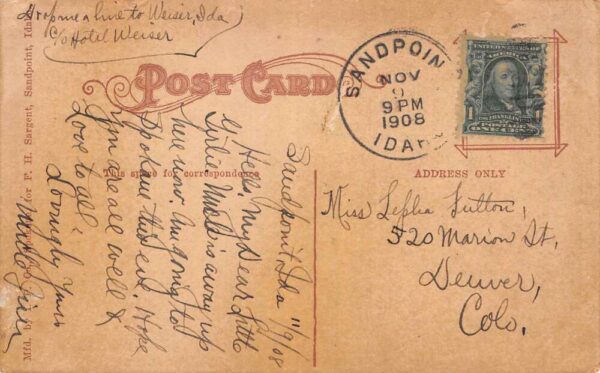 Drop me a line to Weiser, Ida
c/o Hotel Weiser
POST CARD
SANDPOINT
NOV
9
9 PM
1908
IDAHO
UNITED STATES OF AMERICA
FRANKLIN
POSTAGE
ONE CENT
This space for correspondence
ADDRESS ONLY
Sandpoint, Ida 11/9/08
Hello, My Dear Little
Girlie. Uncle is away up
here now. Am going to
Spokane this eve. Hope
you are all well &
Love to all.
Lovingly Yours
Miss Lepha Sutton,
520 Marion St,
Denver,
Colo.
Mfd. by for F. H. Sargent, Sandpoint, Idaho